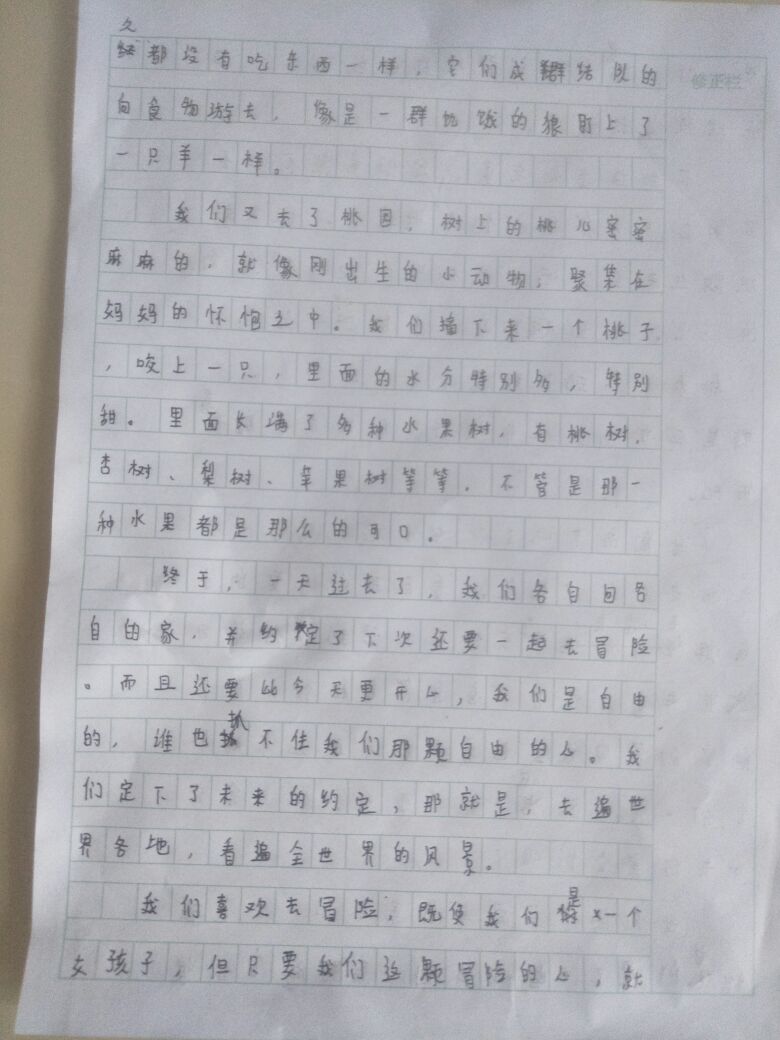 久都没有吃东西一样，它们成群结队的
向食物游去，像是一群饥饿的狼盯上了
一只羊一样。
我们又去了桃园，树上的桃儿密密
麻麻的，就像刚出生的小动物，聚集在
妈妈的怀抱之中。我们摘下来一个桃子
，咬上一只，里面的水分特别多，特别
甜。里面长满了多种水果树，有桃树、
杏树、梨树、苹果树等等，不管是那一
种水果都是那么的可口。
终于，一天过去了，我们各自回各
自的家，并约定了下次还要一起去冒险
。而且还要比今天更开心，我们是自由
的，谁也抓不住我们那颗自由的心。我
们定下了未来的约定，那就是，去遍世
界各地，看遍全世界的风景。
我们喜欢去冒险，既使我们是一个
女孩子，但只要我们这颗冒险的心，就
修正栏